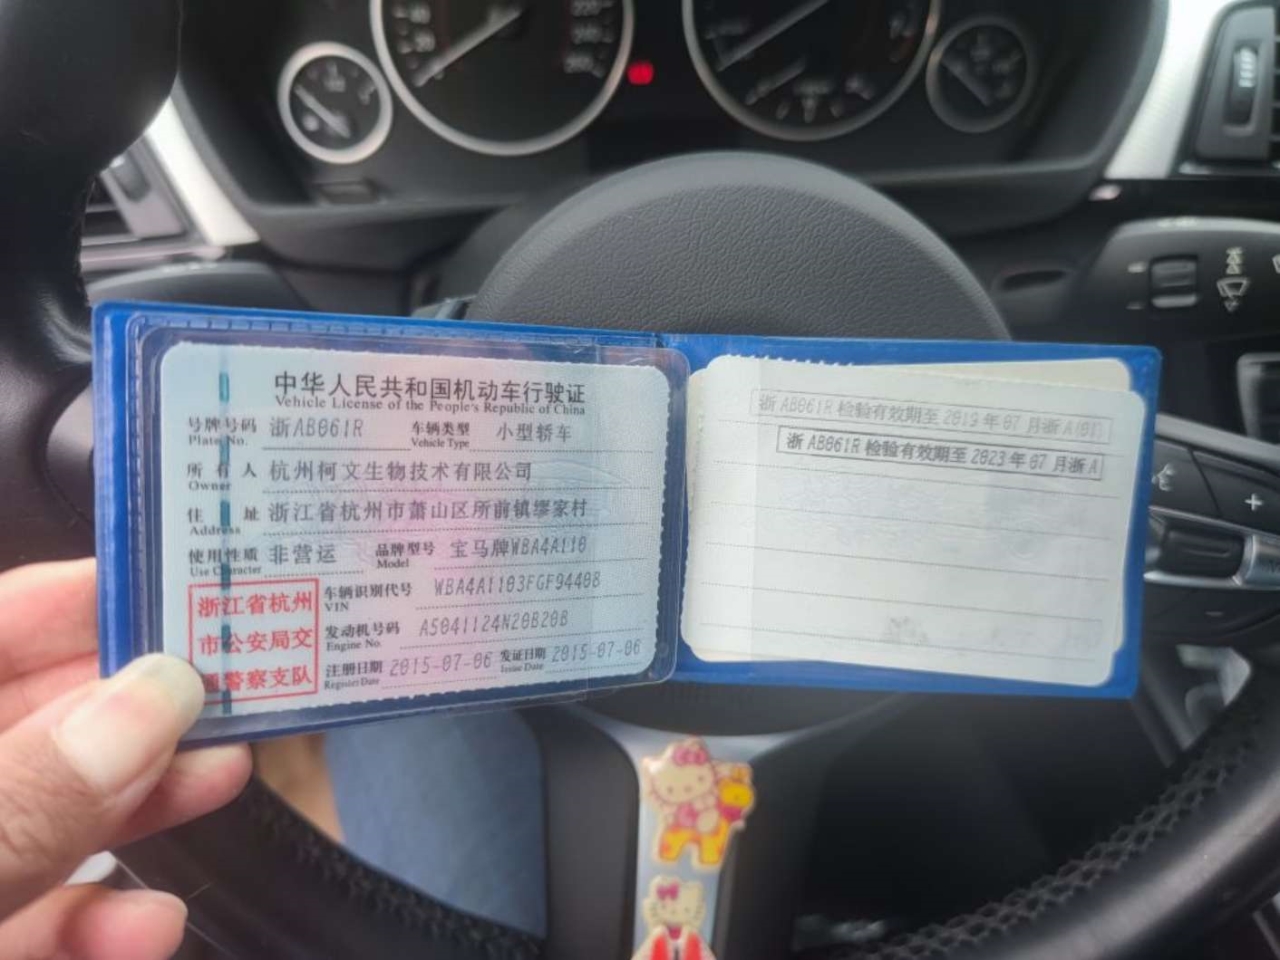 中华人民共和国机动车行驶证
Vehicle License of the People's Republic of China
号牌号码 浙AB061R 车辆类型 小型轿车
Plate No. Vehicle Type
所有人 杭州柯文生物技术有限公司
Owner
住址 浙江省杭州市萧山区所前镇缪家村
Address
使用性质 非营运 品牌型号 宝马牌WBA4A110
Use Character Model
浙江省杭州
市公安局交
警察支队
车辆识别代号 WBA4A1103FGF94408
VIN
发动机号码 A5041124N20B20B
Engine No.
注册日期 2015-07-06 发证日期 2015-07-06
Register Date Issue Date
浙AB061R 检验有效期至 2019 年 07 月浙A(01)
浙AB061R 检验有效期至 2023 年 07 月浙A